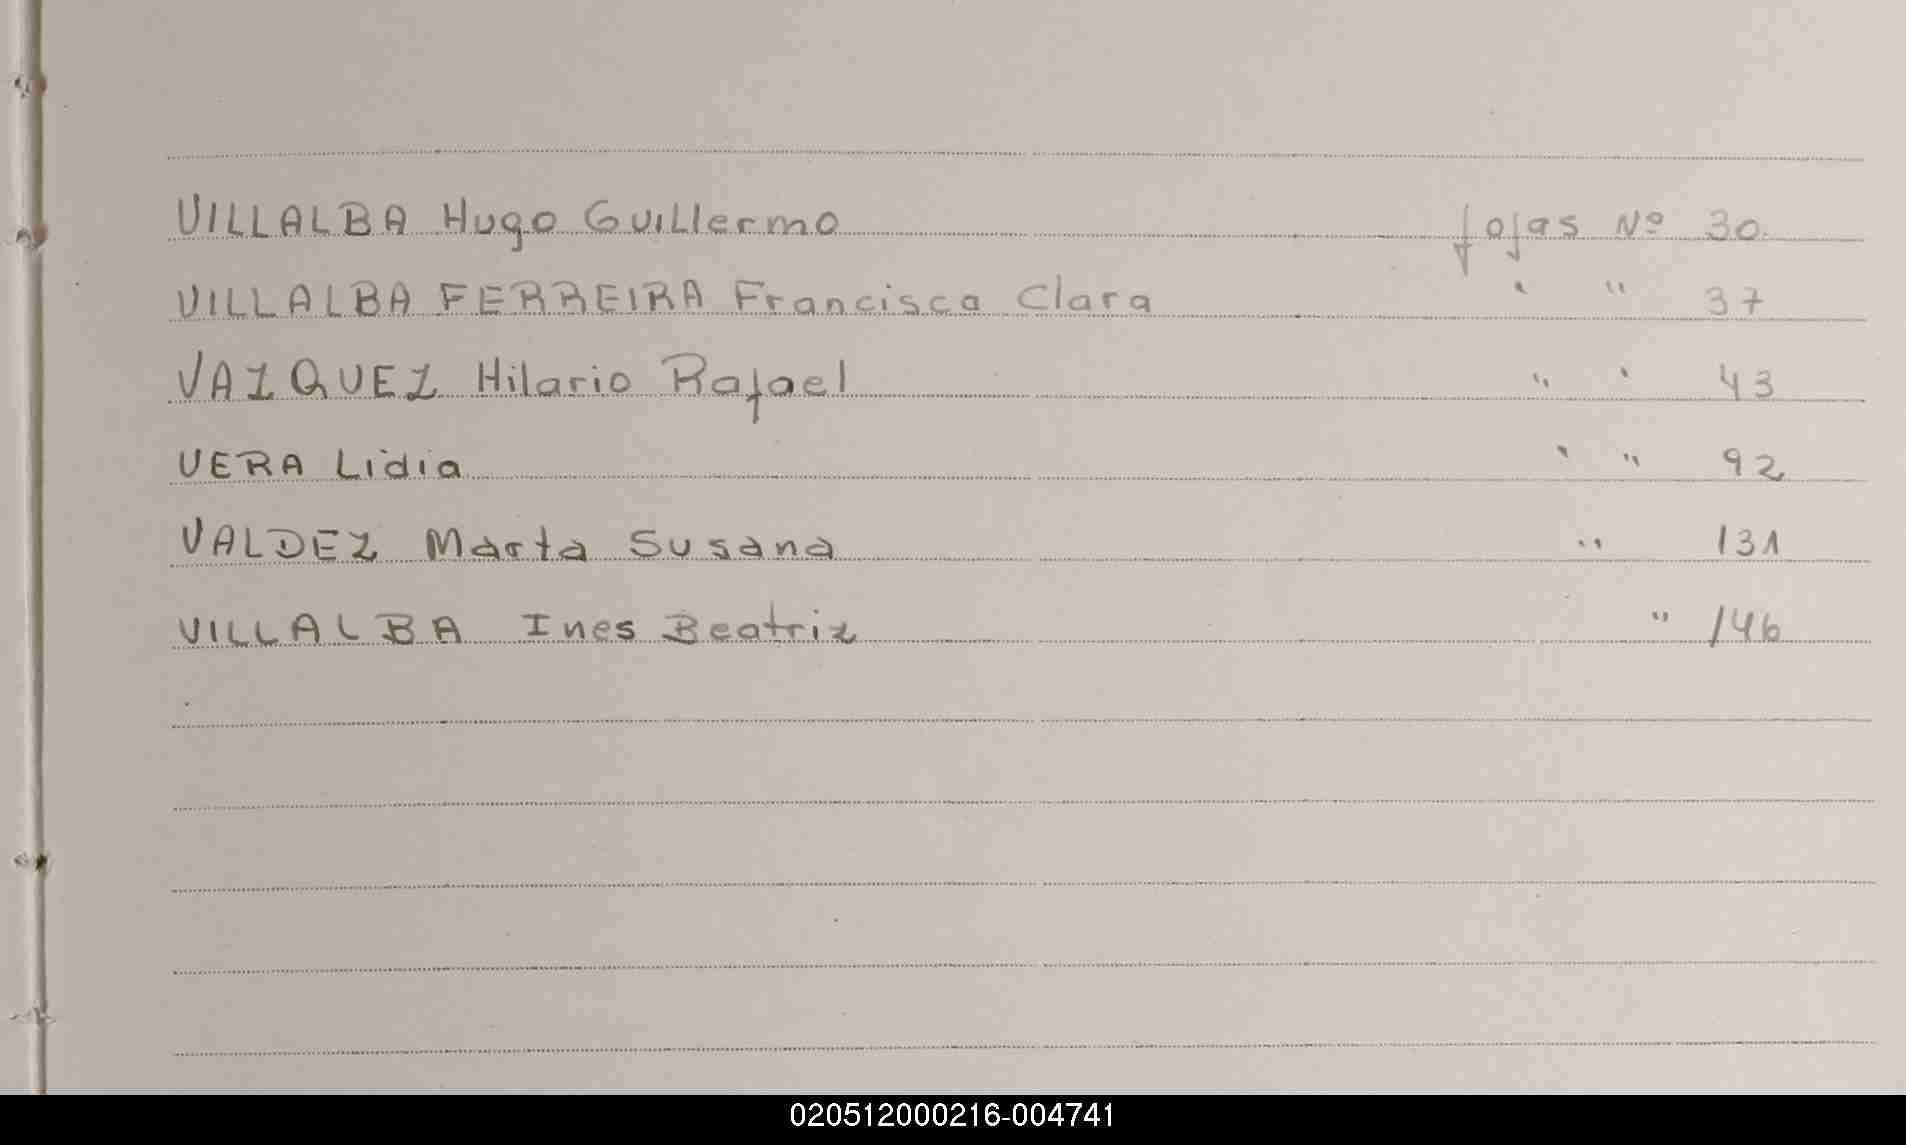 VILLALBA Hugo Guillermo fojas Nº 30.
VILLALBA FERREIRA Francisca Clara " " 37
VAZQUEZ Hilario Rafael " " 43
VERA Lidia " " 92
VALDEZ Marta Susana " 131
VILLALBA Ines Beatriz " 146
020512000216-004741